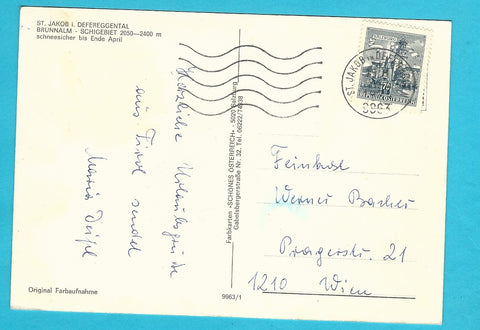 ST. JAKOB I. DEFEREGGENTAL
BRUNNALM - SCHIGEBIET 2050—2400 m
schneesicher bis Ende April
Herzliche Urlaubsgrüße
aus Tirol sendet
Maria
Original Farbaufnahme
Farbkarten «SCHÖNES ÖSTERREICH» - 5020 Salzburg
Gabelsbergerstraße Nr. 32, Tel. 06222/74938
9963/1
ST. JAKOB IN DEFEREGGEN
9963
REPUBLIK ÖSTERREICH
Feinkost
Werner Bacher
Pragerstr. 21
1210 Wien